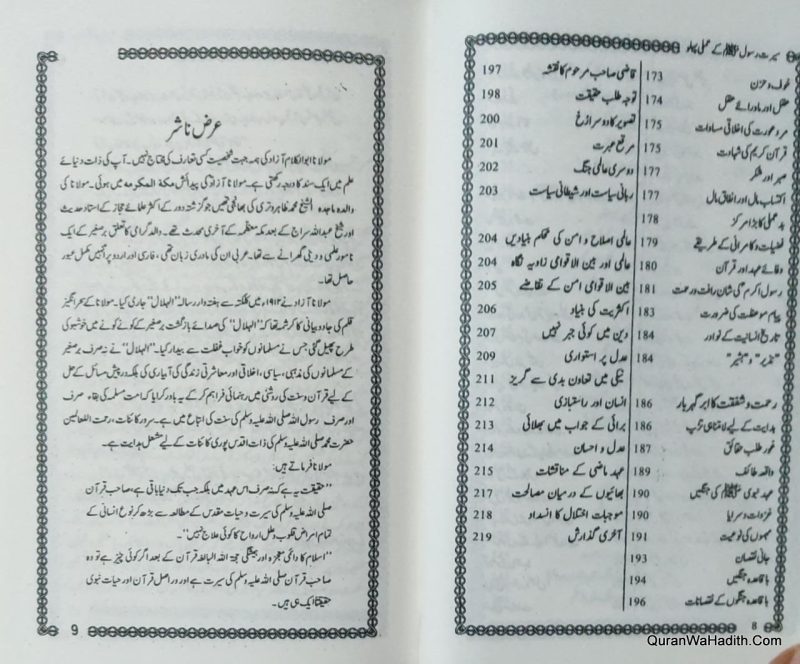 سیرت رسول ﷺ کے عملی پہلو
خوف و حزن 173
عقل اور ماورائے عقل 174
مرد و عورت کی اخلاقی مساوات 175
قرآن کریم کی شہادت 175
صبر اور شکر 177
اکتساب مال اور انفاق مال 177
بدعملی کا بڑا مرکز 178
فضیلت و کامرانی کے طریقے 179
وفائے عہد اور قرآن 180
رسول اکرم کی شان رافت و رحمت 181
پیام موعظت کی ضرورت 183
تاریخ انسانیت کے نوادر 184
"نذیر" و "بشیر" 184
رحمت و شفقت کا ابر گہربار 186
ہدایت کے لیے لامتناہی تڑپ 186
غور طلب حقائق 187
واقعہ طائف 189
عہد نبوی ﷺ کی جنگیں 190
غزوات و سرایا 190
مہموں کی نوعیت 191
جانی نقصان 193
باقاعدہ جنگیں 194
باقاعدہ جنگوں کے نقصانات 196
قاضی صاحب مرحوم کا نقشہ 197
توجہ طلب حقیقت 198
تصویر کا دوسرا رخ 200
مرقع عبرت 201
دوسری عالمی جنگ 202
ربانی سیاست اور شیطانی سیاست 203
عالمی اصلاح و امن کی محکم بنیادیں 204
عالمی اور بین الاقوامی زاویہ نگاہ 204
بین الاقوامی امن کے تقاضے 205
اکثریت کی بنیاد 206
دین میں کوئی جبر نہیں 207
عدل پر استواری 209
نیکی میں تعاون بدی سے گریز 211
انسان اور راستبازی 212
برائی کے جواب میں بھلائی 213
عدل و احسان 214
عہد ماضی کے مناقشات 215
بھائیوں کے درمیان مصالحت 217
موجبات اختلال کا انسداد 218
آخری گذارش 219
8
عرض ناشر
مولانا ابوالکلام آزاد کی ہمہ جہت شخصیت کسی تعارف کی محتاج نہیں۔ آپ کی ذات دنیائے
علم میں ایک سند کا درجہ رکھتی ہے۔ مولانا آزاد کی پیدائش مکۃ المکرمہ میں ہوئی۔ مولانا کی
والدہ ماجدہ الشیخ محمد ظاہر وتری کی بھانجی تھیں جو گزشتہ دور کے اکثر علمائے حجاز کے استاد حدیث
اور شیخ عبداللہ سراج کے بعد مکہ معظمہ کے آخری محدث تھے۔ والد گرامی کا تعلق برصغیر کے ایک
نامور علمی و دینی گھرانے سے تھا۔ عربی ان کی مادری زبان تھی، فارسی اور اردو پر انہیں مکمل عبور
حاصل تھا۔
مولانا آزاد نے ۱۹۱۲ء میں کلکتہ سے ہفتہ وار رسالہ "الہلال" جاری کیا۔ مولانا کے سحر انگیز
قلم کی جادو بیانی کا کرشمہ تھا کہ "الہلال" کی صدائے بازگشت برصغیر کے کونے کونے میں خوشبو کی
طرح پھیل گئی جس نے مسلمانوں کو خواب غفلت سے بیدار کیا۔ "الہلال" نے نہ صرف برصغیر
کے مسلمانوں کی مذہبی، سیاسی، اخلاقی اور معاشرتی زندگی کی آبیاری کی بلکہ درپیش مسائل کے حل
کے لیے قرآن و سنت کی روشنی میں رہنمائی فراہم کر کے یہ باور کرایا کہ امت مسلمہ کی بقاء صرف
اور صرف رسول اللہ صلی اللہ علیہ وسلم کی سنت کی اتباع میں ہے۔ سرور کائنات، رحمت اللعالمین
حضرت محمد صلی اللہ علیہ وسلم کی ذات اقدس پوری کائنات کے لیے مشعل ہدایت ہے۔
مولانا فرماتے ہیں:
"حقیقت یہ ہے کہ نہ صرف اس عہد میں بلکہ جب تک دنیا باقی ہے، صاحب قرآن
صلی اللہ علیہ وسلم کی سیرت و حیات مقدس کے مطالعہ سے بڑھ کر نوع انسانی کے
تمام امراض قلوب و علل ارواح کا کوئی علاج نہیں"۔
"اسلام کا دائمی معجزہ اور ہمیشگی حجۃ اللہ البالغہ قرآن کے بعد اگر کوئی چیز ہے تو وہ
صاحب قرآن صلی اللہ علیہ وسلم کی سیرت ہے اور دراصل قرآن اور حیات نبوی
حقیقتاً ایک ہی ہیں۔
9
QuranWaHadith.Com